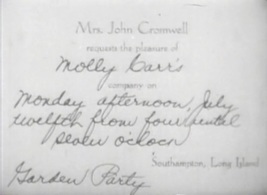 Mrs. John Cromwell
requests the pleasure of
Molly Carr's
company on
Monday afternoon, July
twelfth from four until
seven o'clock
Southampton, Long Island
Garden Party